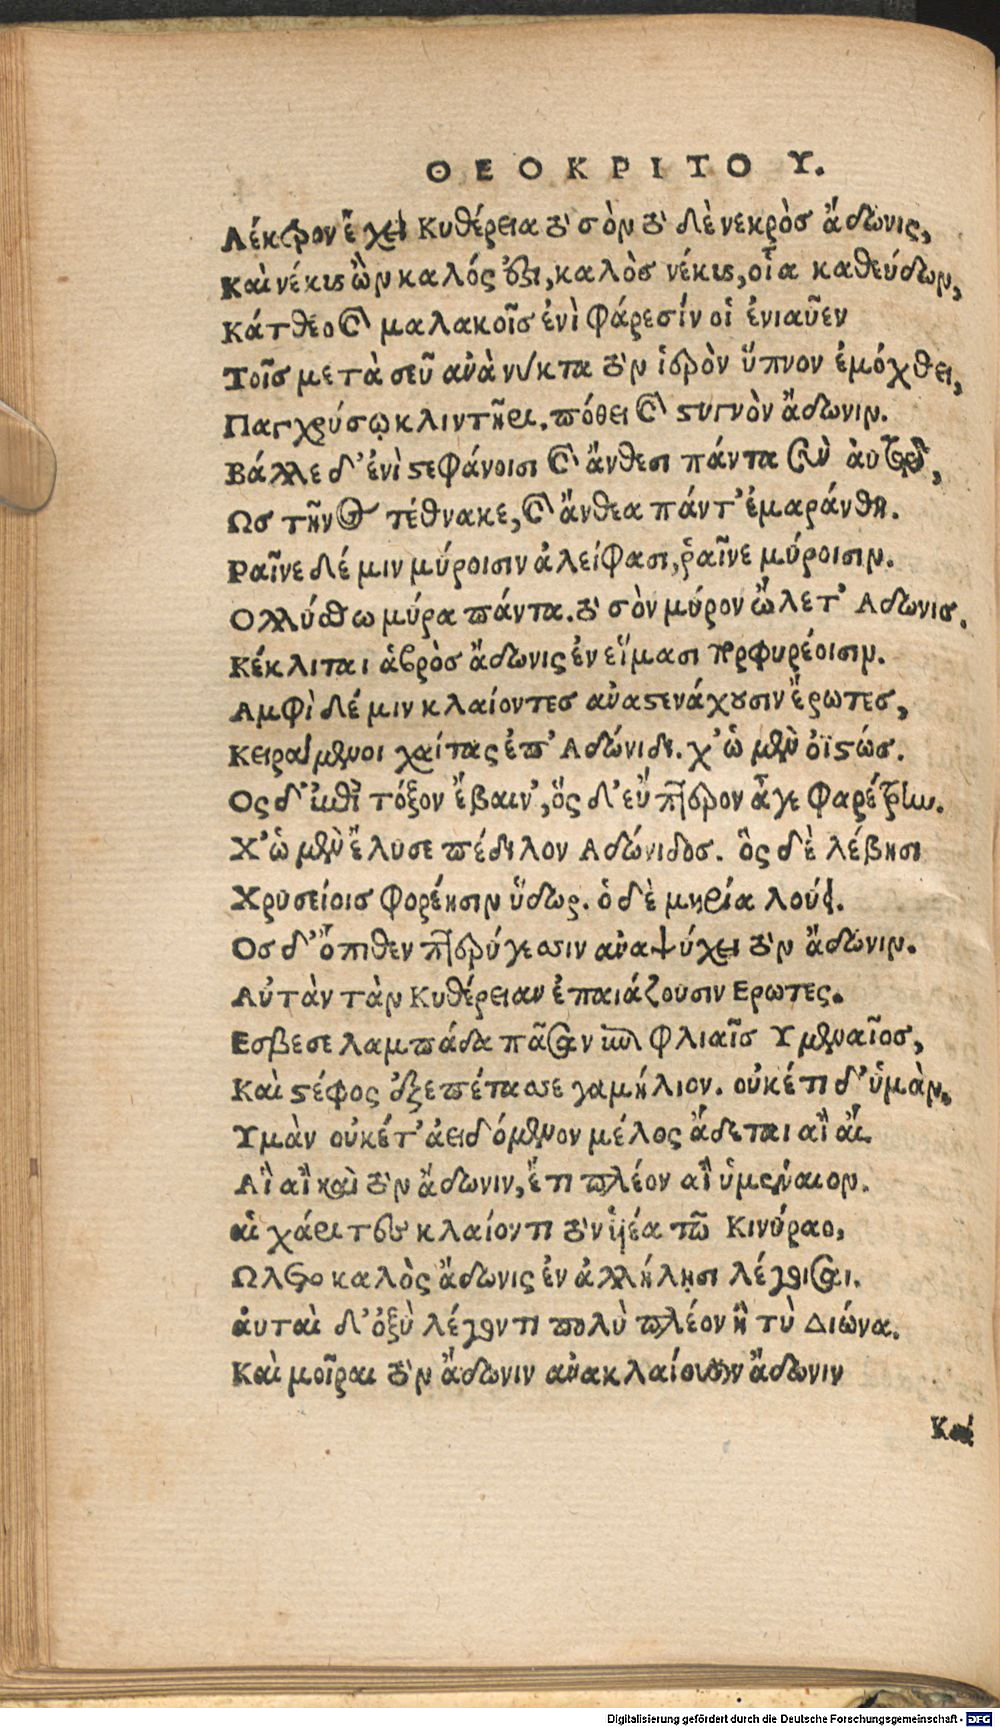 ΘΕΟΚΡΙΤΟΥ.
Λέκτρον ἔχει Κυθέρεια τὸ σὸν τὸ δὲ νεκρὸσ ἄδωνις,
Καὶ νέκυς ὢν καλός ἐστι, καλὸσ νέκυς, οἷα καθεύδων,
Κάτθεο καὶ μαλακοῖσ ἐνὶ φάρεσίν οἱ ἐνιαῦεν
Τοῖσ μετὰ σεῦ ἀνὰ νύκτα τὸν ἱερὸν ὕπνον ἐμόχθει,
Παγχρύσῳ κλιντῆρι. πόθει καὶ στυγνὸν ἄδωνιν.
Βάλλε δ' ἐνὶ στεφάνοισι καὶ ἄνθεσι πάντα σὺν ἀυτῷ,
Ωσ τῆνος τέθνακε, καὶ ἄνθεα πάντ' ἐμαράνθη.
Ραῖνε δέ μιν μύροισιν ἀλείφασι, ῥαῖνε μύροισιν.
Ολλύσθω μύρα πάντα. τὸ σὸν μύρον ὤλετ' Αδωνισ.
Κέκλιται ἁβρὸσ ἄδωνις ἐν εἵμασι πορφυρέοισιν.
Αμφὶ δέ μιν κλαίοντεσ ἀναστενάχουσιν ἔρωτεσ,
Κειράμενοι χαίτας ἐπ' Αδώνιδι. χ' ὡ μὲν ὀϊστώσ.
Ος δ' ἐπὶ τόξον ἔβαιν', ὅς δ' εὔπτερον ἆγε φαρέτρην.
Χ' ὡ μὲν ἔλυσε πέδιλον Αδώνιδοσ. ὃς δὲ λέβησι
Χρυσείοισ φορέησιν ὕδωρ. ὁ δὲ μηρία λούει.
Οσ δ' ὄπιθεν πτερύγεσσιν ἀναψύχει τὸν ἄδωνιν.
Αὐτὰν τὰν Κυθέρειαν ἐπαιάζουσιν Ερωτες.
Εσβεσε λαμπάδα πᾶσαν ἐπὶ φλιαῖσ Υμεναῖοσ,
Καὶ στέφος ἐξεπέτασσε γαμήλιον. οὐκέτι δ' ὑμὰν,
Υμὰν οὐκέτ' ἀειδόμενον μέλος ᾄδεται αἲ αἴ.
Αἲ αἲ καὶ τὸν ἄδωνιν, ἔτι πλέον αἲ ὑμέναιον.
αἱ χάριτες κλαίοντι τὸν υἱέα τῶ Κινύραο,
Ωλετο καλὸς ἄδωνις ἐν ἀλλήλῃσι λέγοισαι.
ἀυταὶ δ' ὀξὺ λέγοντι πολὺ πλέον ἢ τὺ Διώνα.
Καὶ μοῖραι τὸν ἄδωνιν ἀνακλαίουσιν ἄδωνιν
Καὶ
Digitalisierung gefördert durch die Deutsche Forschungsgemeinschaft - DFG